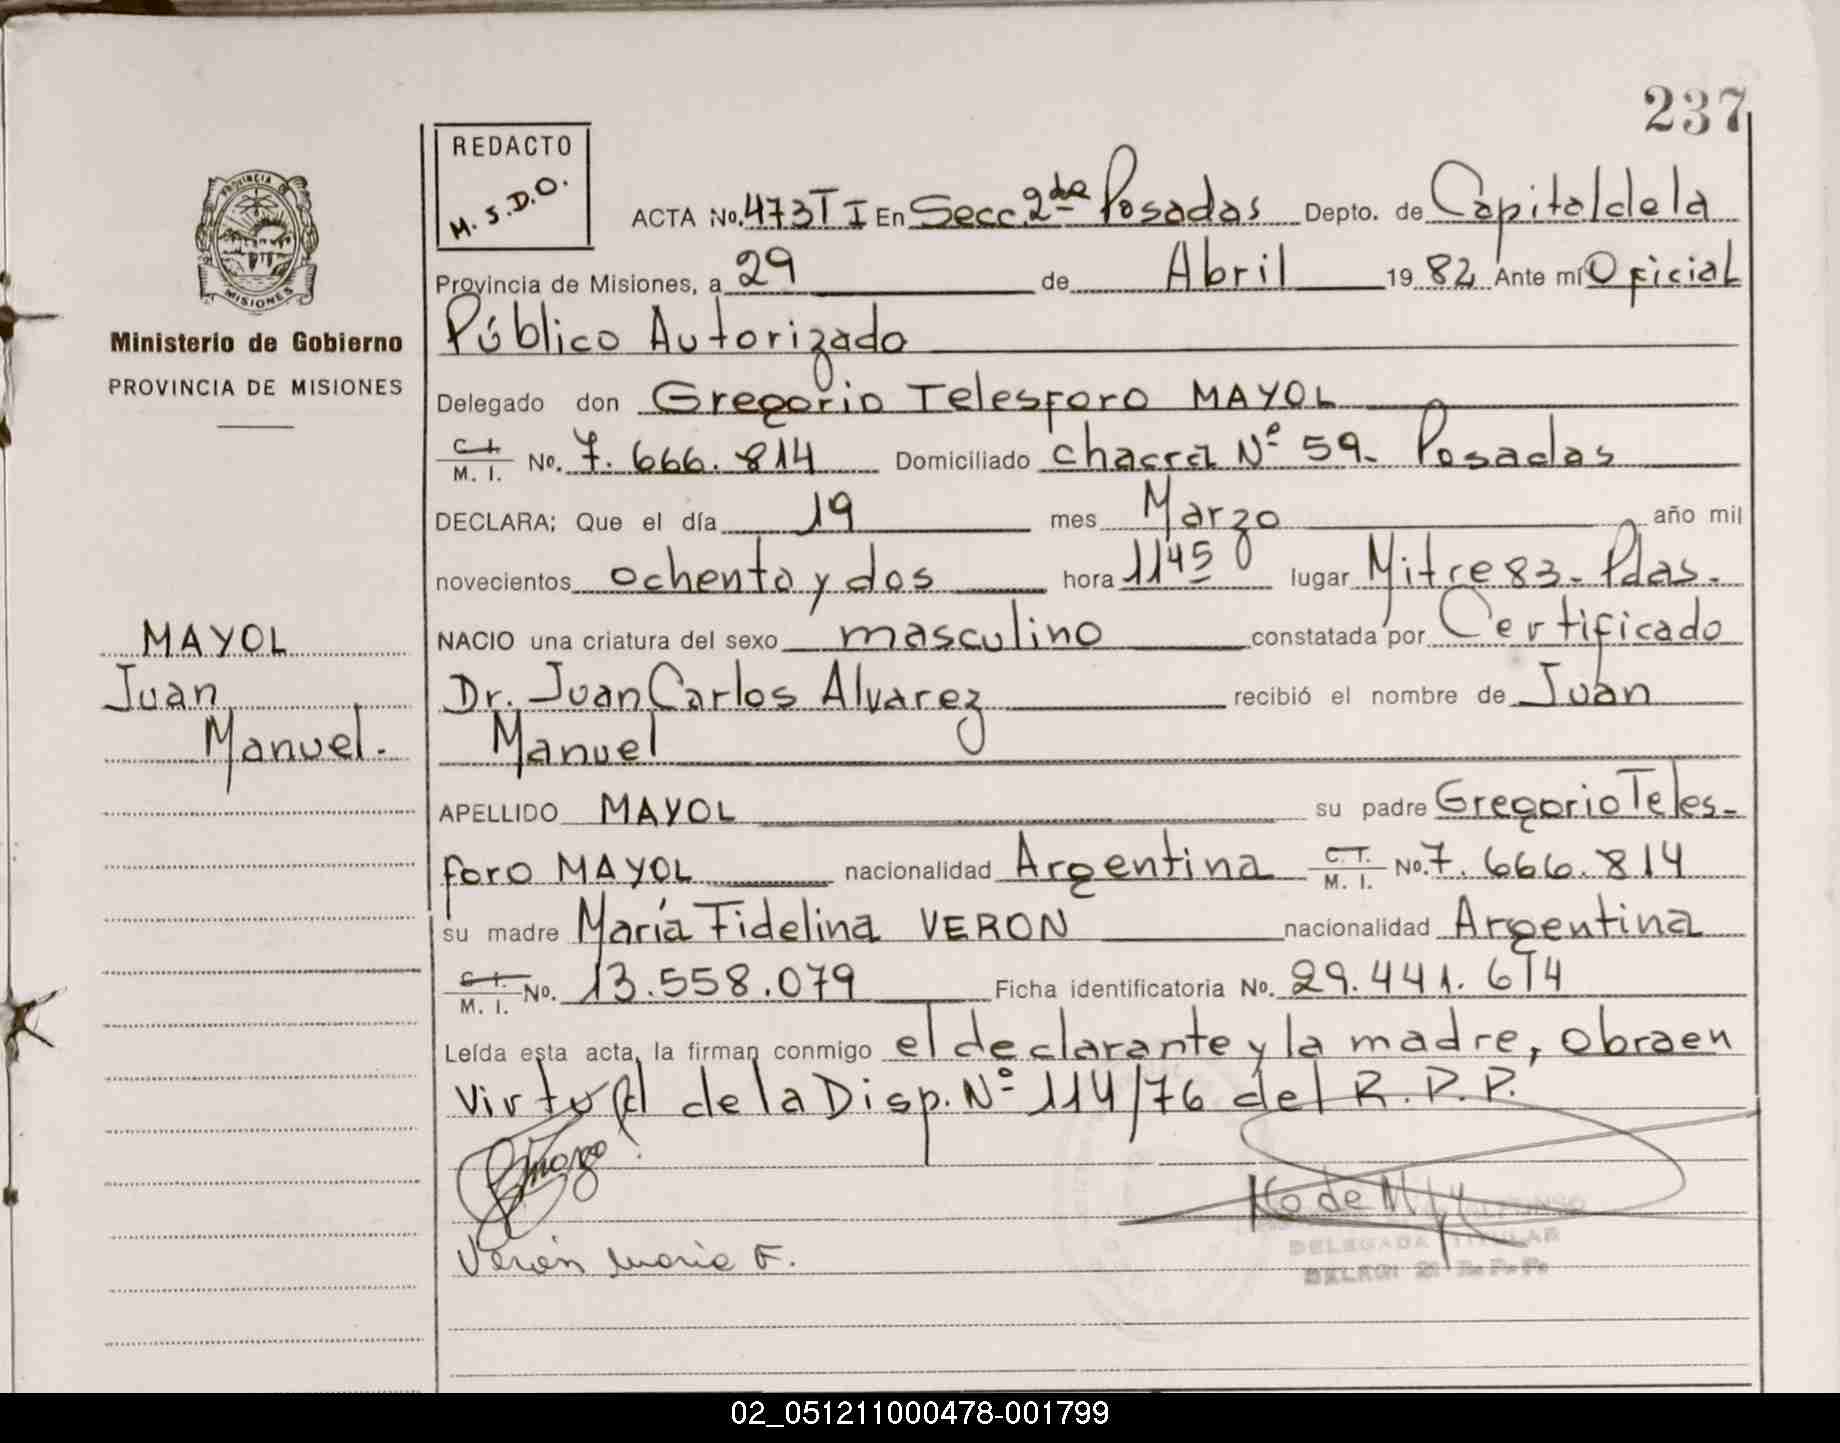 237
REDACTO
M.S.D.O.
PROVINCIA DE
MISIONES
Ministerio de Gobierno
PROVINCIA DE MISIONES
ACTA No. 473 T I En Secc. 2da Posadas Depto. de Capital de la
Provincia de Misiones, a 29 de Abril 1982 Ante mí Oficial
Público Autorizado
Delegado don Gregorio Telesforo MAYOL
C. I. M. I. No. 7.666.814 Domiciliado chacra Nº 59- Posadas
DECLARA; Que el día 19 mes Marzo año mil
novecientos ochenta y dos hora 1145 lugar Mitre 83- Pdas.
NACIO una criatura del sexo masculino constatada por Certificado
Dr. Juan Carlos Alvarez recibió el nombre de Juan
Manuel
APELLIDO MAYOL su padre Gregorio Teles-
foro MAYOL nacionalidad Argentina C. I. M. I. No. 7.666.814
su madre María Fidelina VERON nacionalidad Argentina
C. I. M. I. No. 13.558.079 Ficha identificatoria No. 29.441.614
Leída esta acta, la firman conmigo el declarante y la madre, obra en
virtud de la Disp. Nº 114/76 del R.P.P.
MAYOL
Juan
Manuel.
Verón María F.
DELEGADA TITULAR
02_051211000478-001799